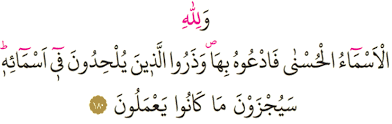 وَلِلّٰهِ
الْاَسْمَٓاءُ الْحُسْنٰى فَادْعُوهُ بِهَاۖ وَذَرُوا الَّذ۪ينَ يُلْحِدُونَ ف۪ٓي اَسْمَٓائِه۪ۜ
سَيُجْزَوْنَ مَا كَانُوا يَعْمَلُونَ ﴿١٨٠﴾